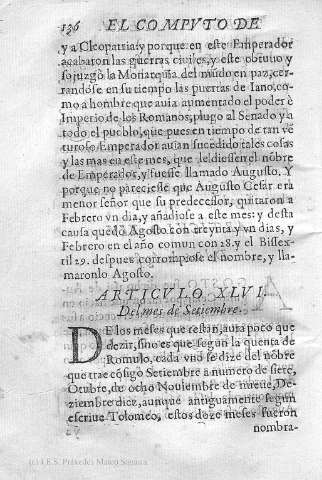 136 EL COMPVTO DE
y a Cleopatria:y porque en este Emperador
acabaron las guerras ciuiles, y este obtuuo y
sojuzgò la Monarquia del mũdo en paz, cer-
randose en su tiempo las puertas de Iano, co-
mo a hombre que auia aumentado el poder è
Imperio de los Romanos, plugo al Senado y a
todo el pueblo, que pues en tiempo de tan vẽ
turoso Emperador auian sucedido tales cosas
y las mas en este mes, que le diessen el nõbre
de Emperador, y fuesse llamado Augusto. Y
porque no pareciesse que Augusto Cesar era
menor señor que su predecessor, quitaron a
Febrero vn dia, y añadiose a este mes: y desta
causa quedò Agosto con treynta y vn dias, y
Febrero en el año comun con 28. y el Bissex-
til 29. despues corrompiose el nombre, y lla-
maronlo Agosto.
ARTICVLO XLVI.
Del mes de Setiembre.
DE los meses que restan, aura poco que
dezir, sino es que segun la quenta de
Romulo, cada vno se dize del nõbre
que trae cõsigo Setiembre a numero de siete,
Octubre, de ocho Nouiembre de nueue, De-
ziembre diez, aunque antiguamente segun
escriue Tolomeo, estos doze meses fueron
nombra-
(c) I.E.S. Práxedes Mateo Sagasta